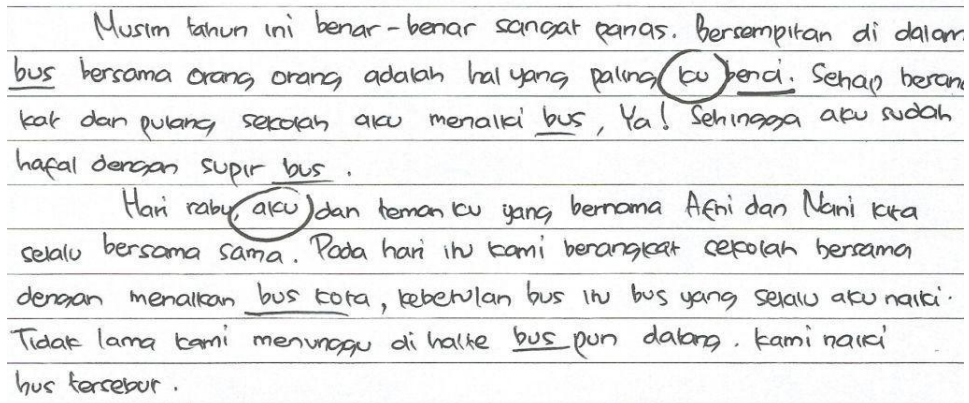 Musim tahun ini benar-benar sangat panas. Bersempitan di dalam
bus bersama orang orang adalah hal yang paling ku benci. Setiap berang
kat dan pulang sekolah aku menaiki bus, Ya! Sehingga aku sudah
hafal dengan supir bus.
Hari rabu, aku dan teman ku yang bernama Afni dan Nani kita
selalu bersama sama. Pada hari itu kami berangkat sekolah bersama
dengan menaikan bus kota, kebetulan bus itu bus yang selalu aku naiki.
Tidak lama kami menunggu di halte bus pun datang. kami naiki
bus tersebut.